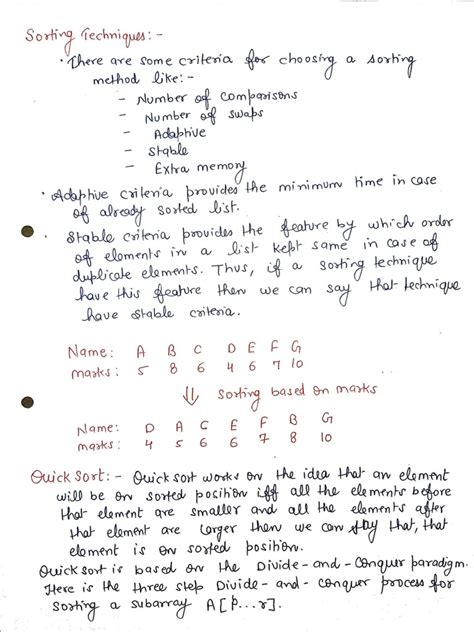 Sorting Techniques:-
• There are some criteria for choosing a sorting
method like:-
- Number of comparisons
- Number of swaps
- Adaptive
- Stable
- Extra memory
• Adaptive criteria provides the minimum time in case
of already sorted list.
• Stable criteria provides the feature by which order
of elements in a list kept same in case of
duplicate elements. Thus, if a sorting technique
have this feature then we can say that technique
have stable criteria.
Name: A B C D E F G
marks: 5 8 6 4 6 7 10
⇓ Sorting based on marks
Name: D A C E F B G
marks: 4 5 6 6 7 8 10
Quick Sort:- Quick sort works on the idea that an element
will be on sorted position iff all the elements before
that element are smaller and all the elements after
that element are larger then we can say that, that
element is on sorted position.
Quick sort is based on the Divide-and-Conquer paradigm.
Here is the three step Divide-and-Conquer process for
sorting a subarray A[p...r].